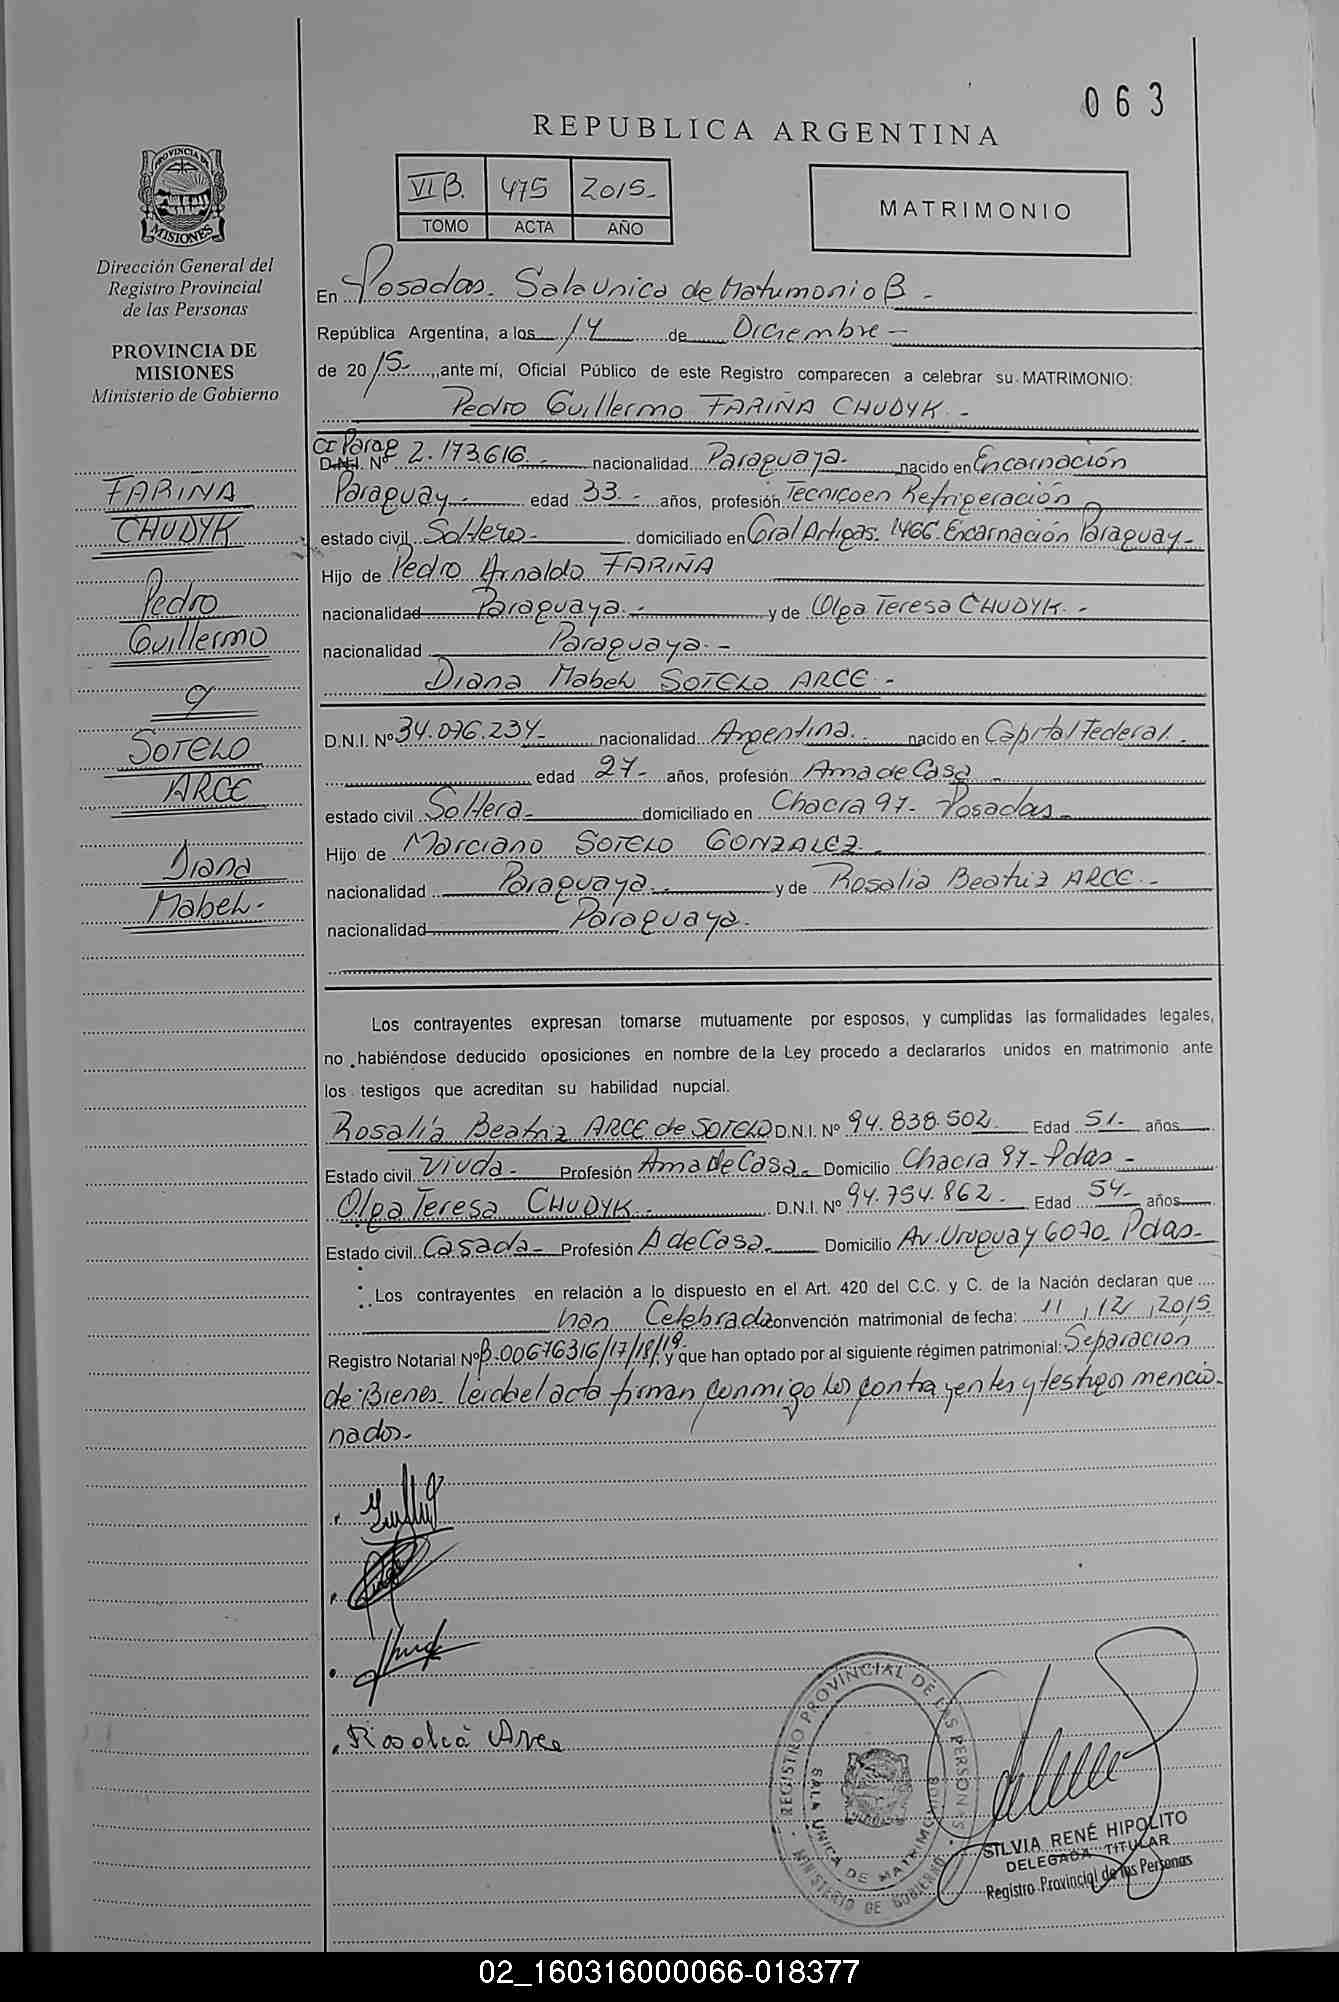 063
REPUBLICA ARGENTINA
VI B. 475 2015.-
TOMO ACTA AÑO
MATRIMONIO
PROVINCIA DE
MISIONES
Dirección General del
Registro Provincial
de las Personas
PROVINCIA DE
MISIONES
Ministerio de Gobierno
FARIÑA
CHUDYK
Pedro
Guillermo
y
SOTELO
ARCE
Diana
Mabel.-
En Posadas. Sala Unica de Matrimonio B.-
República Argentina, a los 14 de Diciembre.-
de 2015.- ,ante mí, Oficial Público de este Registro comparecen a celebrar su MATRIMONIO:
Pedro Guillermo FARIÑA CHUDYK.-
CI Parag
D.N.I. Nº 2.173.616.- nacionalidad Paraguaya.- nacido en Encarnación
Paraguay.- edad 33.- años, profesión Técnico en Refrigeración
estado civil Soltero.- domiciliado en Gral Artigas. 1466. Encarnación Paraguay.-
Hijo de Pedro Arnaldo FARIÑA
nacionalidad Paraguaya.- y de Olga Teresa CHUDYK.-
nacionalidad Paraguaya.-
Diana Mabel SOTELO ARCE.-
D.N.I. Nº 34.076.234.- nacionalidad Argentina.- nacido en Capital Federal.-
edad 27.- años, profesión Ama de Casa.-
estado civil Soltera.- domiciliado en Chacra 97- Posadas.-
Hijo de Marciano SOTELO GONZALEZ.-
nacionalidad Paraguaya.- y de Rosalia Beatriz ARCE.-
nacionalidad Paraguaya.
Los contrayentes expresan tomarse mutuamente por esposos, y cumplidas las formalidades legales,
no habiéndose deducido oposiciones en nombre de la Ley procedo a declararlos unidos en matrimonio ante
los testigos que acreditan su habilidad nupcial.
Rosalía Beatriz ARCE de SOTELO D.N.I. Nº 94.838.502.- Edad 51.- años
Estado civil Viuda.- Profesión Ama de Casa.- Domicilio Chacra 97- Pdas.-
Olga Teresa CHUDYK.- D.N.I. Nº 94.754.862.- Edad 54.- años
Estado civil Casada.- Profesión A de Casa.- Domicilio Av. Uruguay 6070. Pdas.-
Los contrayentes en relación a lo dispuesto en el Art. 420 del C.C. y C. de la Nación declaran que
han Celebrada convención matrimonial de fecha: 11 , 12 , 2015
Registro Notarial Nº B.00676316/17/18/19, y que han optado por al siguiente régimen patrimonial: Separación
de Bienes. leida el acta firman conmigo los contrayentes y testigos mencio-
nados.-
Rosalia Arce
REGISTRO PROVINCIAL DE LAS PERSONAS
SALA UNICA DE MATRIMONIO
MINISTERIO DE GOBIERNO
SILVIA RENÉ HIPOLITO
DELEGADA TITULAR
Registro Provincial de las Personas
02_160316000066-018377